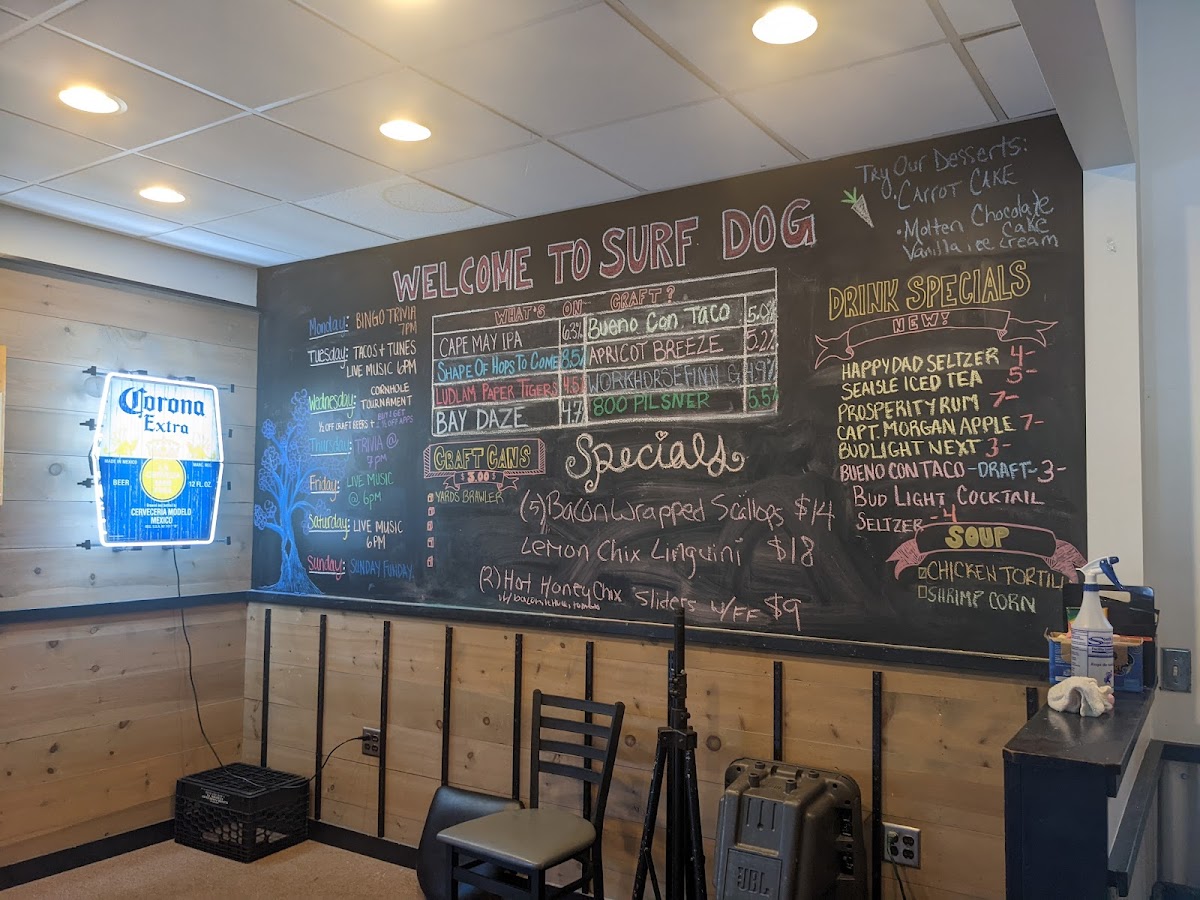 WELCOME TO SURF DOG
Try Our Desserts:
• CARROT CAKE
• Molten Chocolate
Cake
Vanilla ice cream
Monday: BINGO TRIVIA
7PM
Tuesday: TACOS + TUNES
LIVE MUSIC 6PM
Wednesday: CORNHOLE
TOURNAMENT
½ OFF CRAFT BEERS + BUY 1 GET
1 ½ OFF APPS
Thursday: TRIVIA @
7pm
Friday: LIVE MUSIC
@ 6pm
Saturday: LIVE MUSIC
6PM
Sunday: SUNDAY FUNDAY
WHAT'S ON CRAFT?
CAPE MAY IPA 6.3% BUENO CON TACO 5.0%
SHAPE OF HOPS TO COME 8.5% APRICOT BREEZE 5.2%
LUDLAM PAPER TIGERS 4.5% WORKHORSE FINN G 4.9%
BAY DAZE 4.7 800 PILSNER 5.5%
CRAFT CANS
$3.00
YARDS BRAWLER
Specials
(5) Bacon Wrapped Scallops $14
Lemon Chix Linguini $18
(2) Hot Honey Chix Sliders w/FF $9
DRINK SPECIALS
NEW!
HAPPY DAD SELTZER 4-
SEA ISLE ICED TEA 5-
PROSPERITY RUM 7-
CAPT. MORGAN APPLE 7-
BUD LIGHT NEXT 3-
BUENO CON TACO -DRAFT- 3-
BUD LIGHT COCKTAIL
SELTZER - 4
SOUP
CHICKEN TORTIL
SHRIMP CORN
Corona
Extra
MADE IN MEXICO
BEER 12 FL. OZ.
CERVECERIA MODELO
MEXICO
JBL